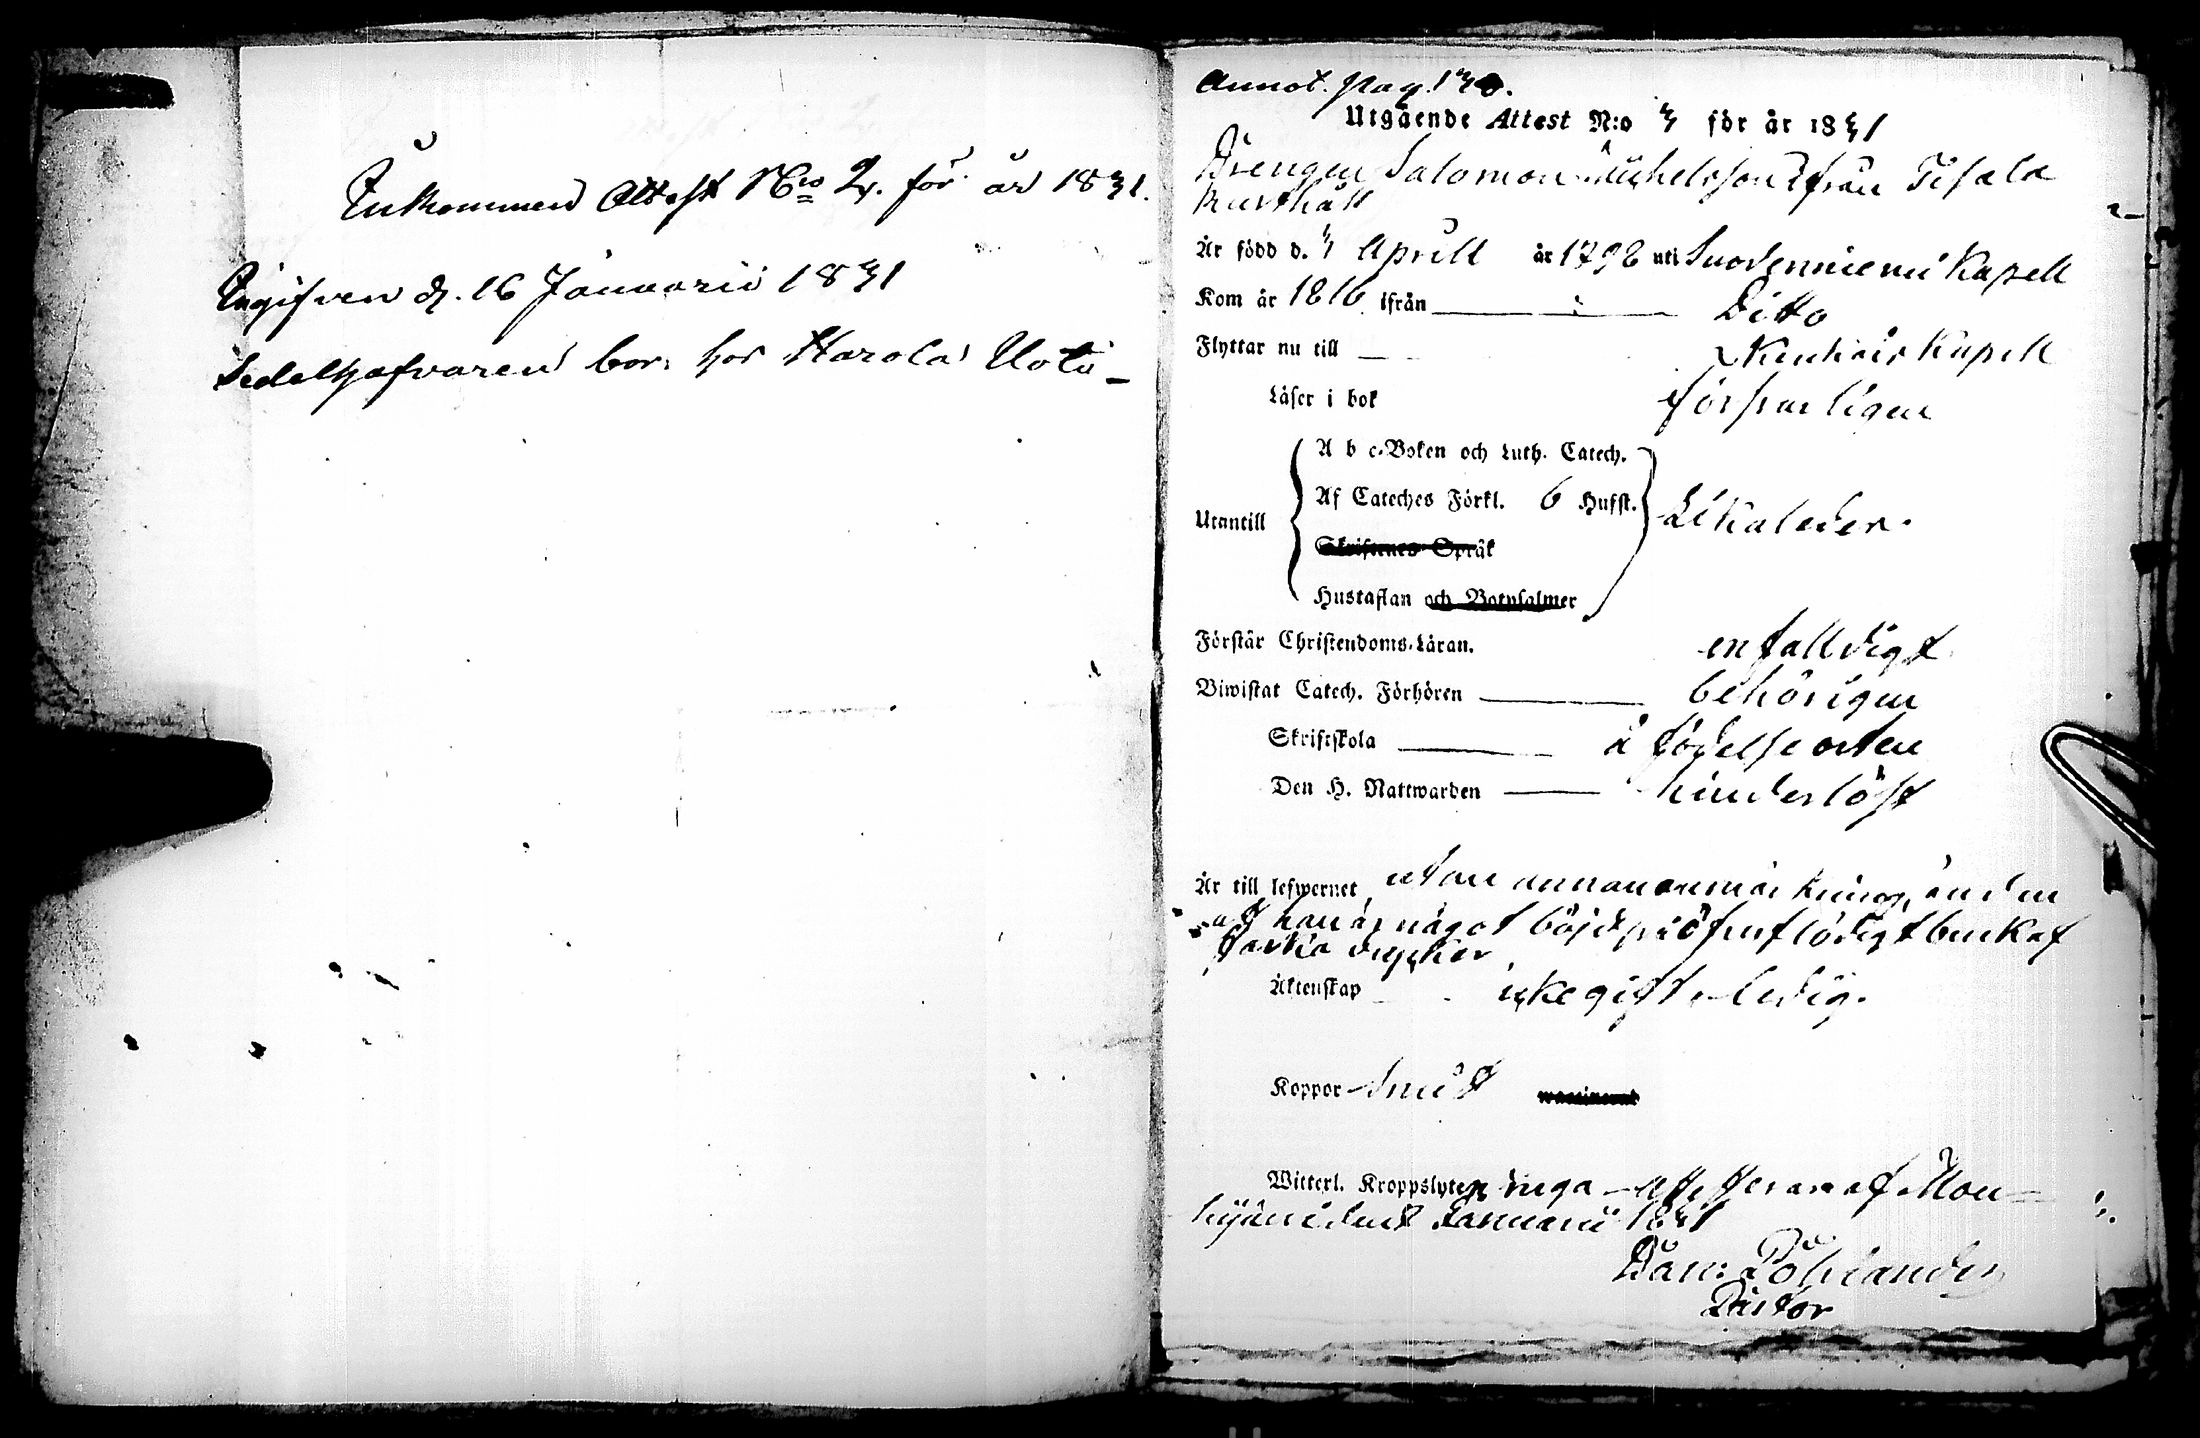 Inkommen Attest No 2. för år 1831.
Ingifven d. 16 Januarii 1831
Sedelhafvaren bor hos Harola Uoti
Annot. pag. 130.
Utgående Attest N:o 3 för år 1831
Drengen Salomon Michelsson ifrån
Rusthåll
Är född d. 3 Aprill år 1798 uti Suodenniemi Kapell
Kom år 1816 ifrån Ditto
Flyttar nu till Kapell
Läser i bok försvarligen
Utantill
A b c-Boken och Luth. Catech.
Af Cateches Förkl. 6 Hufst.
Likaledes.
Skriftenes Språk
Hustaflan och Botpsalmer
Förstår Christendoms-Läran. enfalldigt
Biwistat Catech. Förhören behörigen
Skriftskola å födelseorten
Den H. Nattwarden hinderlöst
Är till lefwernet utan annan anmärkning, än den
att han är något böjd på öfverflödigt bruk af
starka drycker
Äktenskap icke gift, ledig.
Koppor haft waccinerad
Witterl. Kroppslyten inga attesteras af Mou-
hijärvi den 8 Januarii 1831
Dan:
Pastor